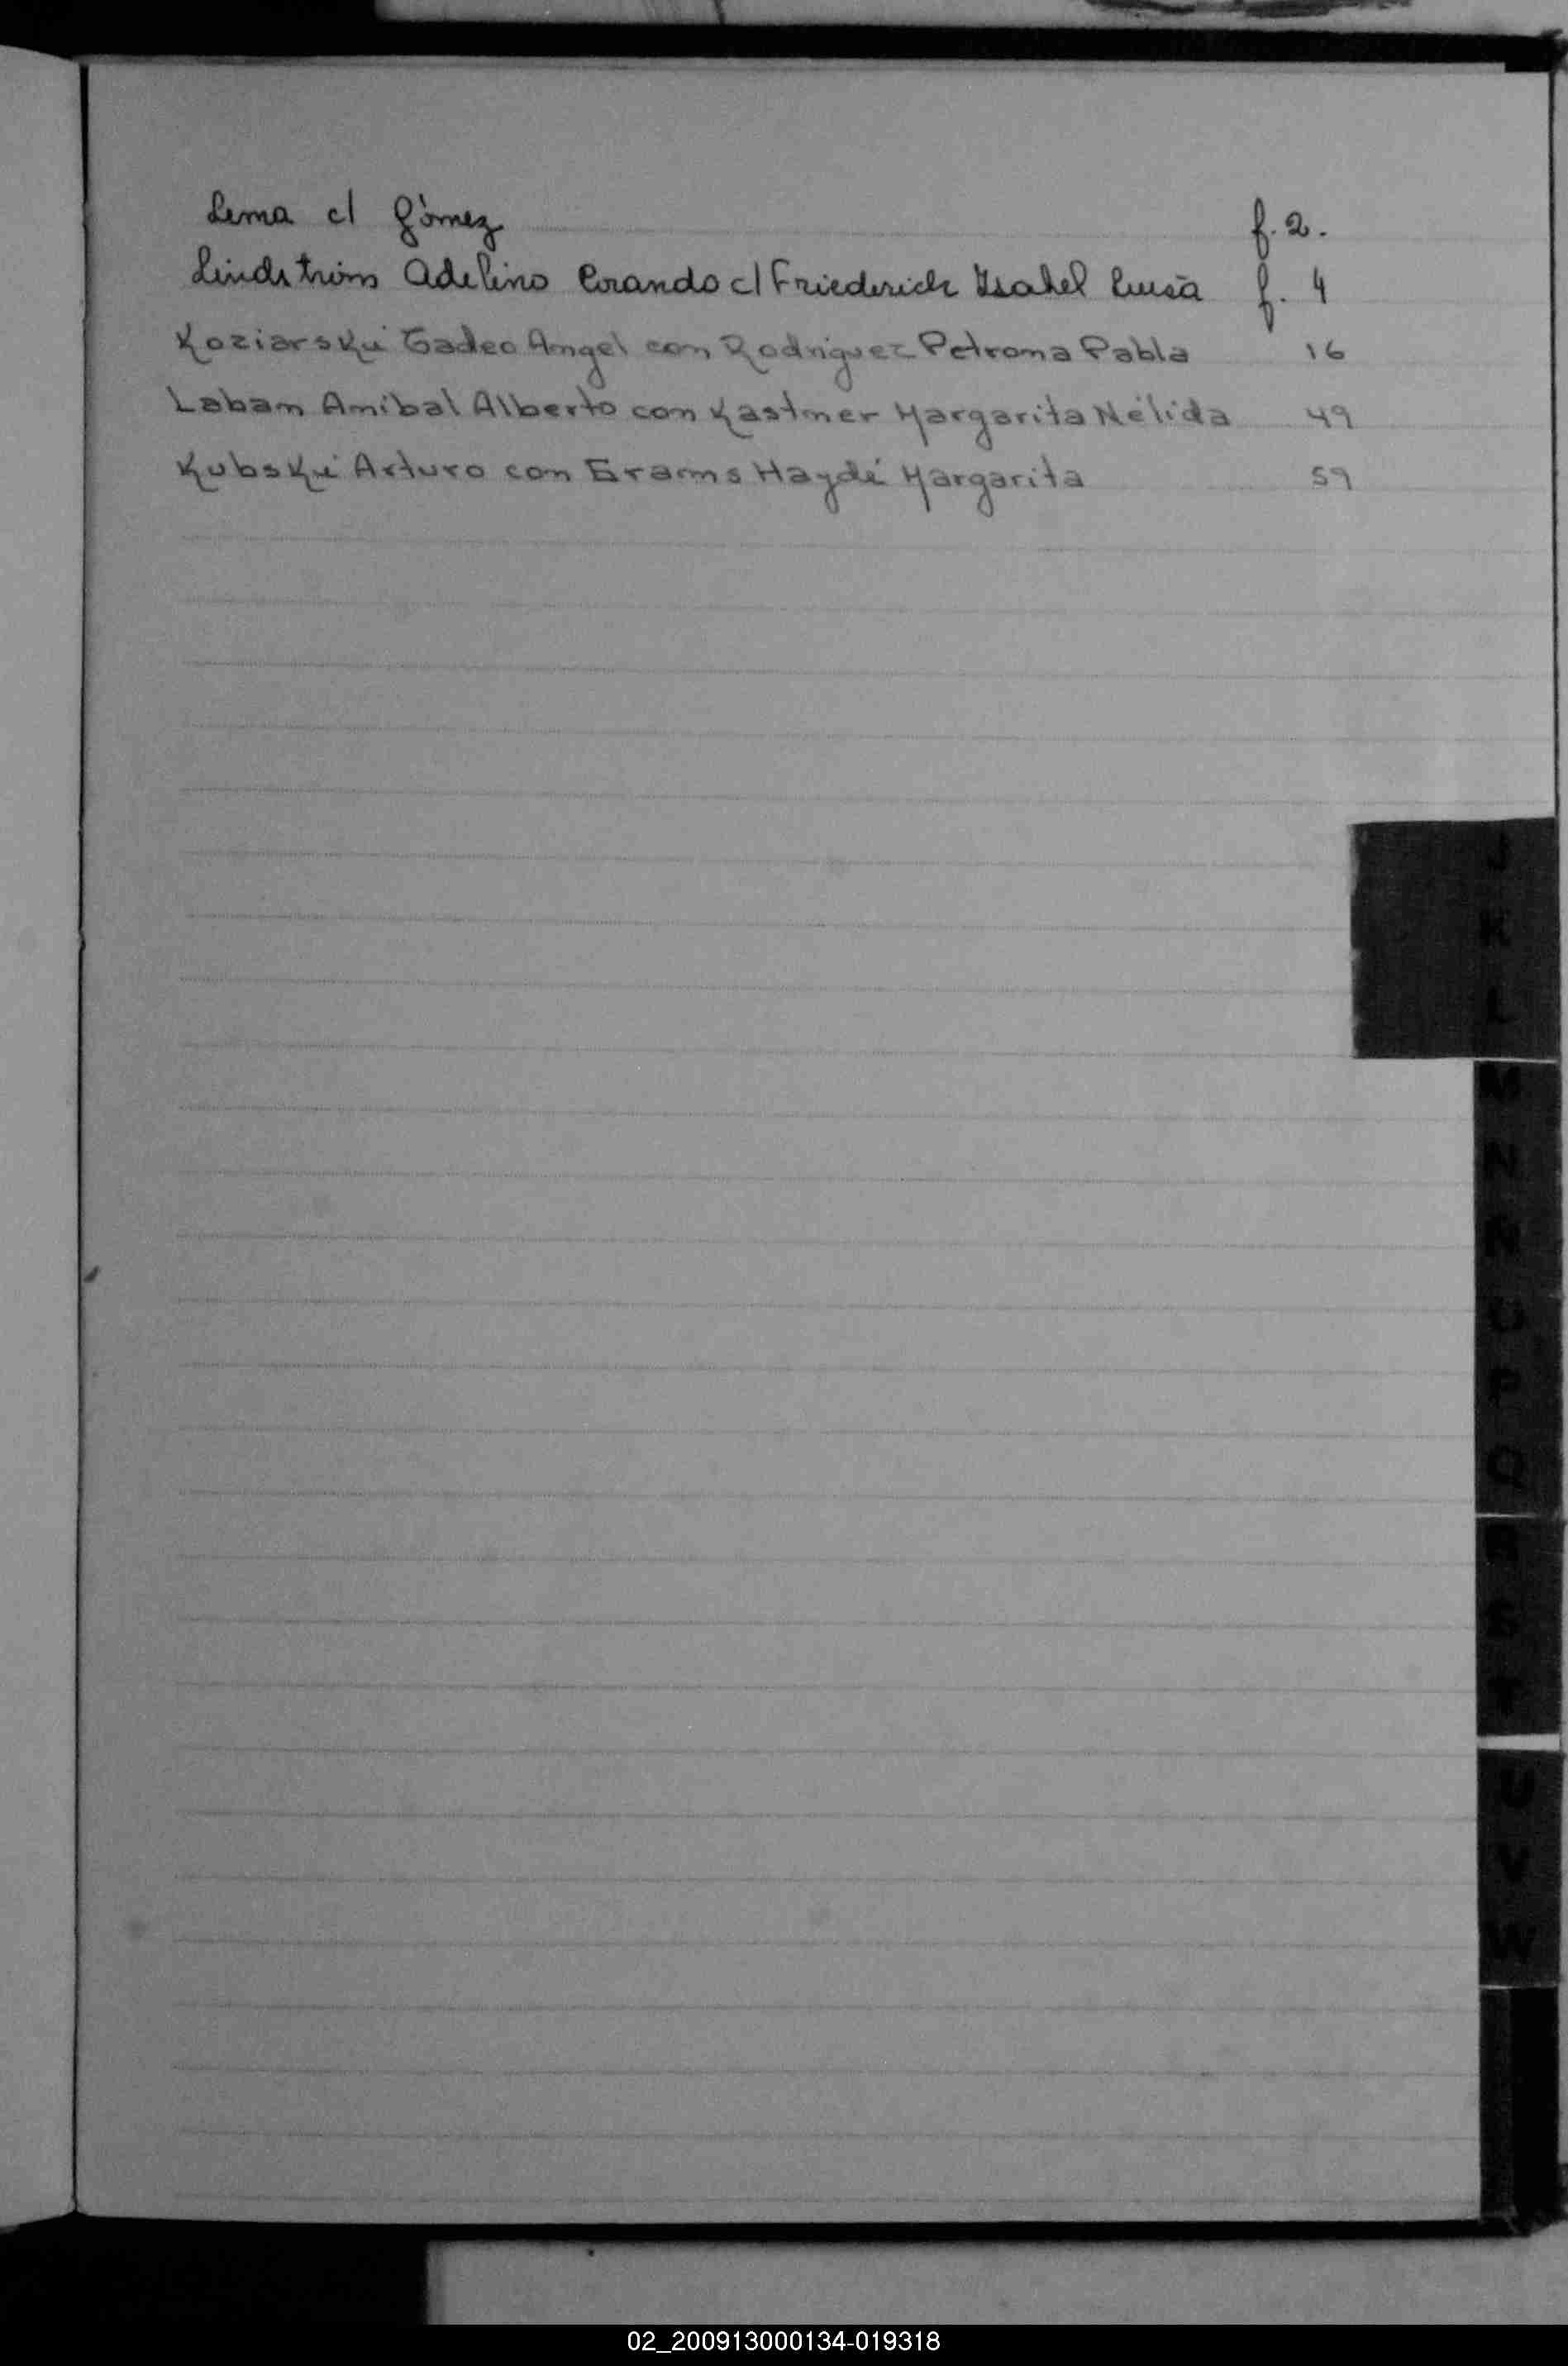 Lema c/ Gómez f. 2.
Lindström Adelino Orando c/ Friederich Isabel Luisa f. 4
Koziarski Tadeo Angel con Rodriguez Petrona Pabla 16
Laban Anibal Alberto con Kastner Margarita Nélida 49
Kubski Arturo con Grams Haydé Margarita 59
J
K
L
M
N
Ñ
O
P
Q
R
S
T
U
V
W
02_200913000134-019318